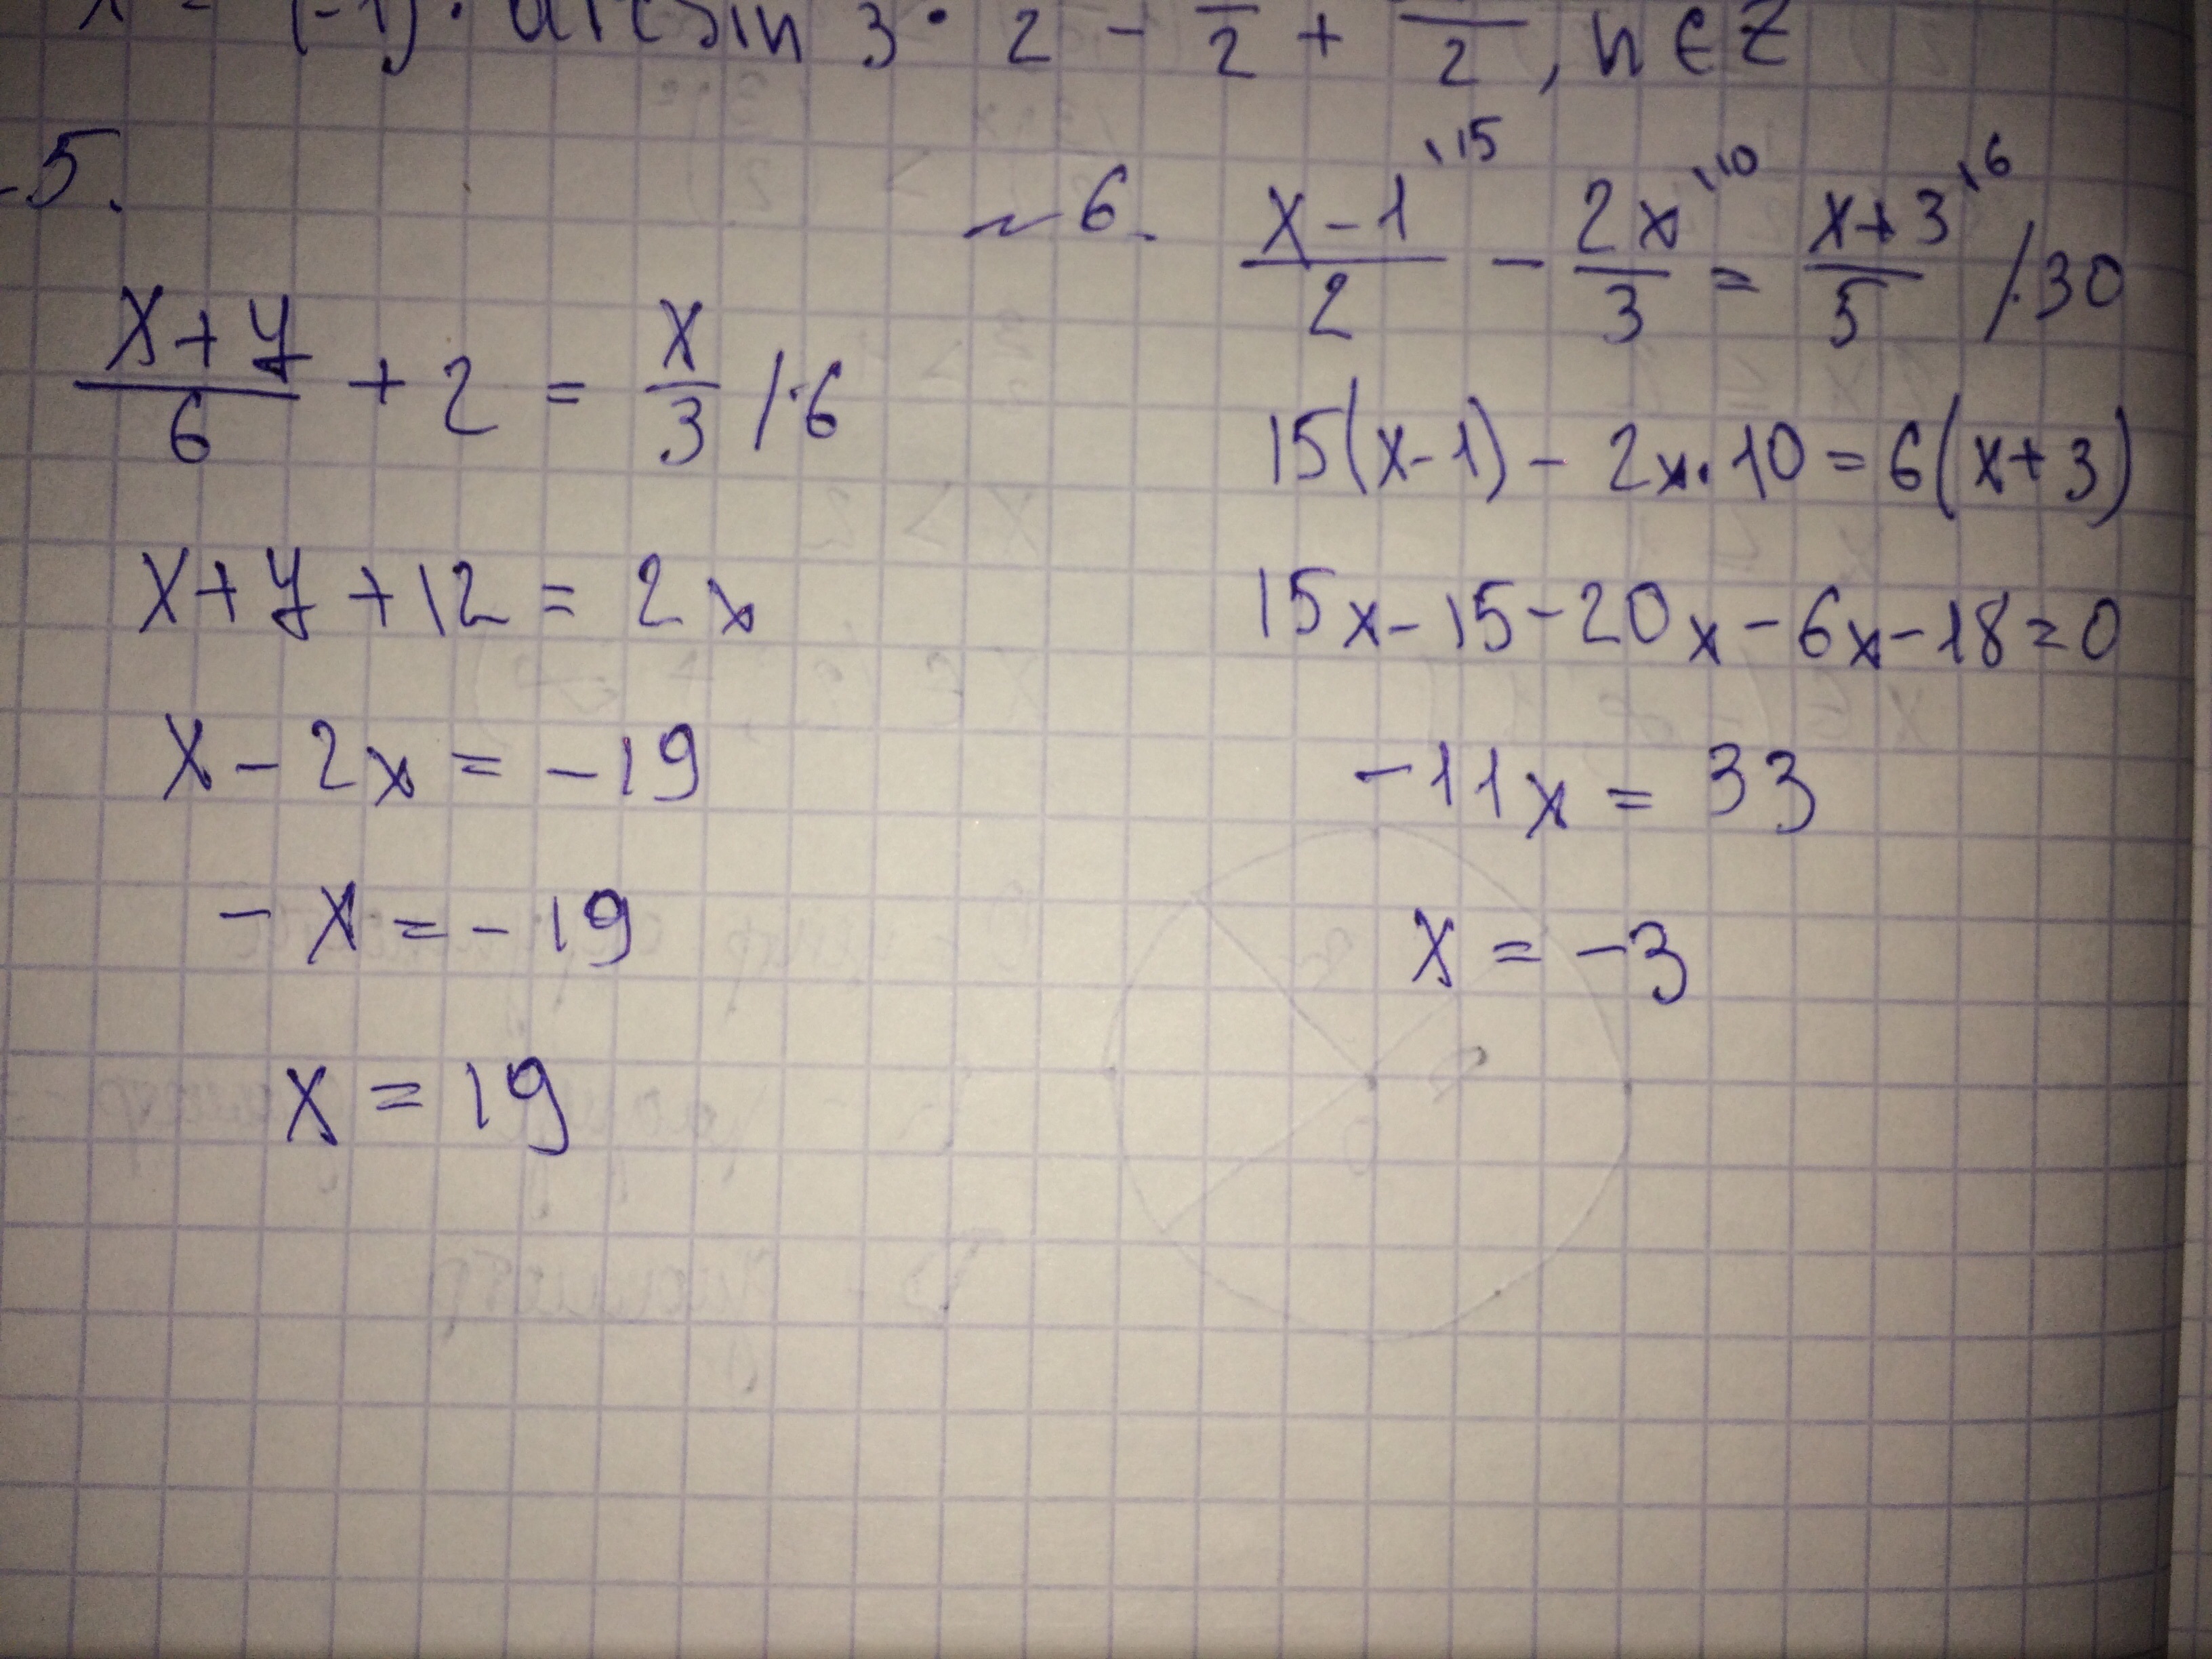 x = (-1) · arcsin 3 · 2 - _/2 + _/2, n ∈ Z
5.
(x+7)/6 + 2 = x/3 /·6
x+7+12 = 2x
x - 2x = -19
-x = -19
x = 19
~6. (x-1)/2 \15 - 2x/3 \10 = (x+3)/5 \6 /·30
15(x-1) - 2x·10 = 6(x+3)
15x-15-20x-6x-18=0
-11x = 33
x = -3